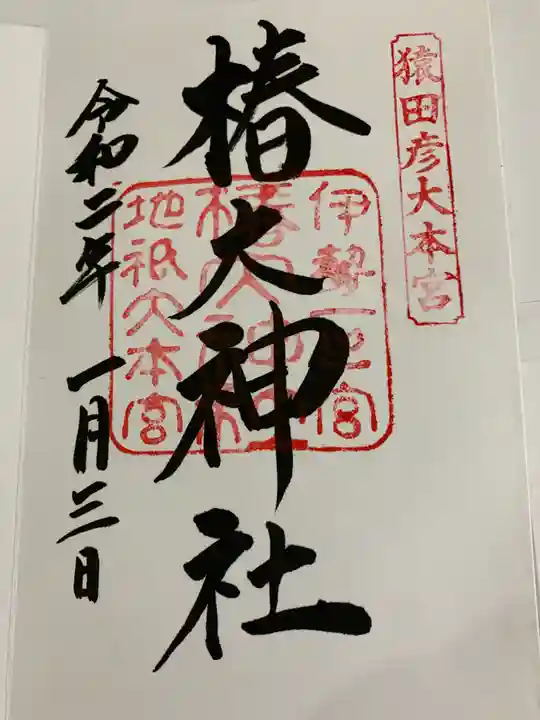 猿田彦大本宮
伊勢一之宮
椿大神社
地祇大本宮
椿大神社
令和二年 一月三日